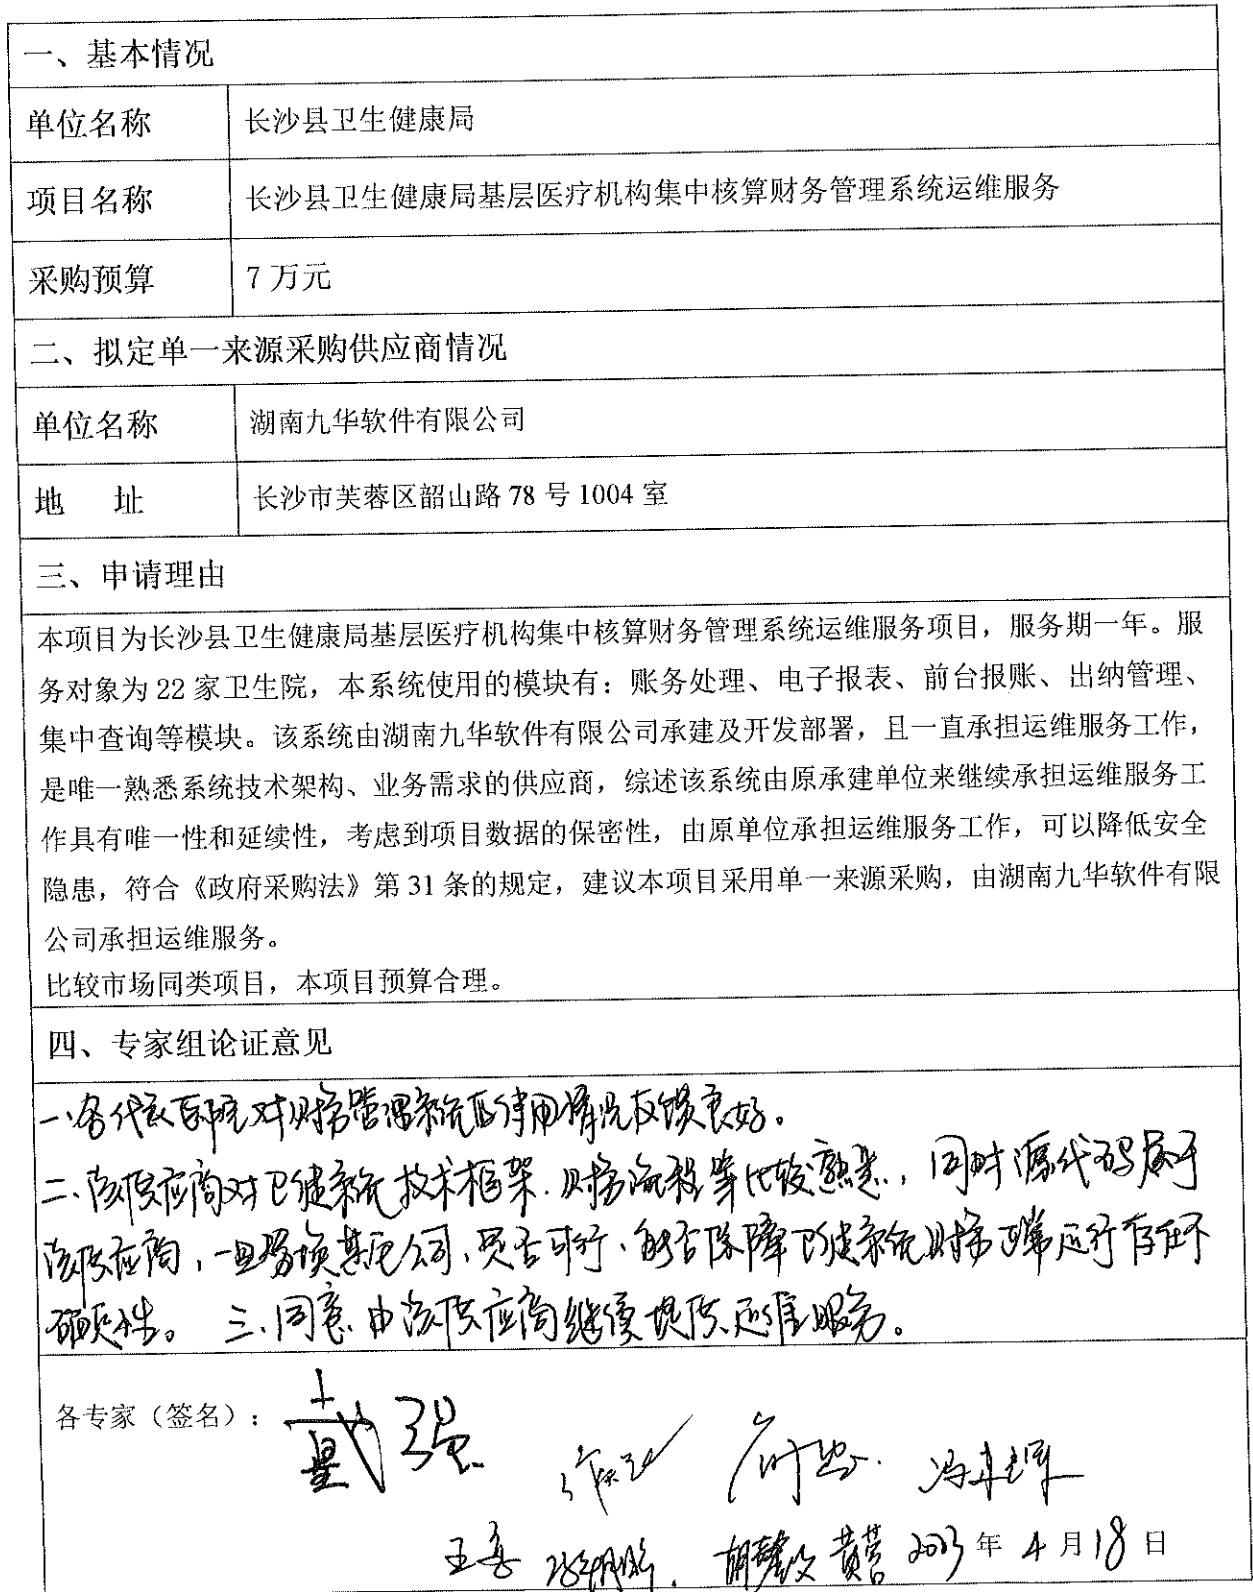 一、基本情况
单位名称 长沙县卫生健康局
项目名称 长沙县卫生健康局基层医疗机构集中核算财务管理系统运维服务
采购预算 7 万元
二、拟定单一来源采购供应商情况
单位名称 湖南九华软件有限公司
地 址 长沙市芙蓉区韶山路 78 号 1004 室
三、申请理由
本项目为长沙县卫生健康局基层医疗机构集中核算财务管理系统运维服务项目，服务期一年。服
务对象为 22 家卫生院，本系统使用的模块有：账务处理、电子报表、前台报账、出纳管理、
集中查询等模块。该系统由湖南九华软件有限公司承建及开发部署，且一直承担运维服务工作，
是唯一熟悉系统技术架构、业务需求的供应商，综述该系统由原承建单位来继续承担运维服务工
作具有唯一性和延续性，考虑到项目数据的保密性，由原单位承担运维服务工作，可以降低安全
隐患，符合《政府采购法》第 31 条的规定，建议本项目采用单一来源采购，由湖南九华软件有限
公司承担运维服务。
比较市场同类项目，本项目预算合理。
四、专家组论证意见
一、各代表医院对财务管理系统的使用情况反馈良好。
二、该供应商对卫健系统技术框架、财务流程等比较熟悉，同时源代码属于
该供应商，一旦易换其它公司，是否可行、能否保障卫健系统财务正常运行存在不
确定性。 三、同意由该供应商继续提供运维服务。
各专家（签名）： 戴强
王 黄营 2023 年 4 月 18 日